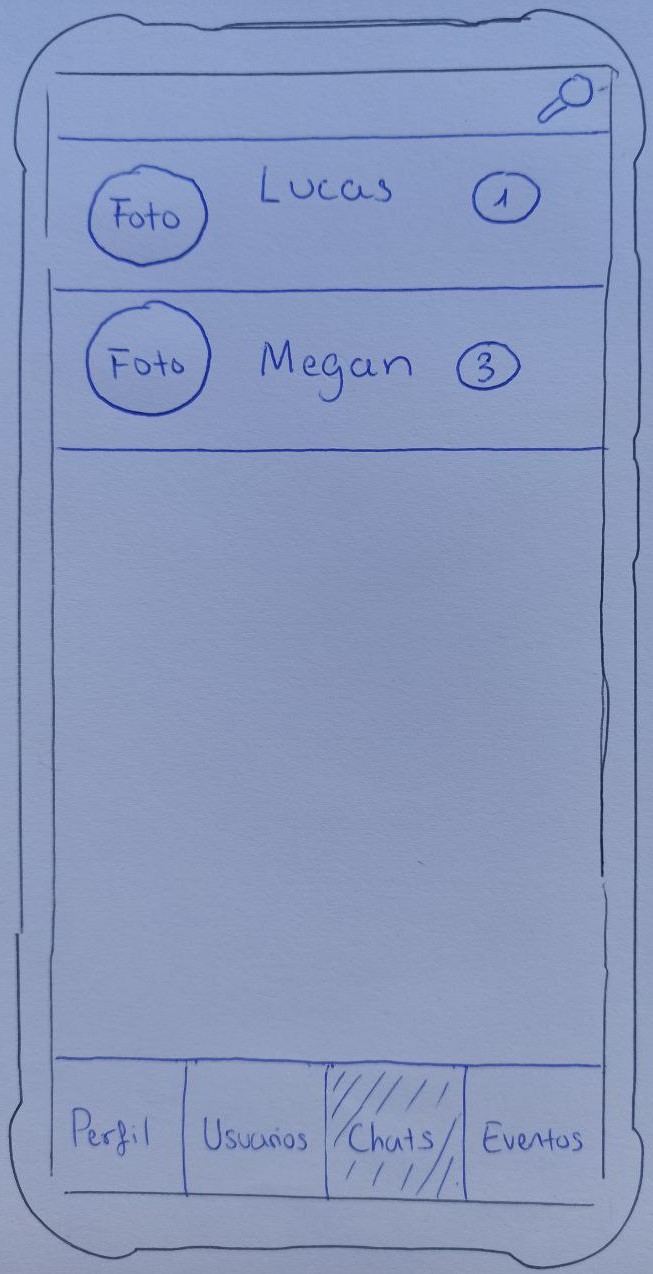 Lucas
Foto
1
Foto
Megan
3
Perfil
Usuarios
Chats
Eventos